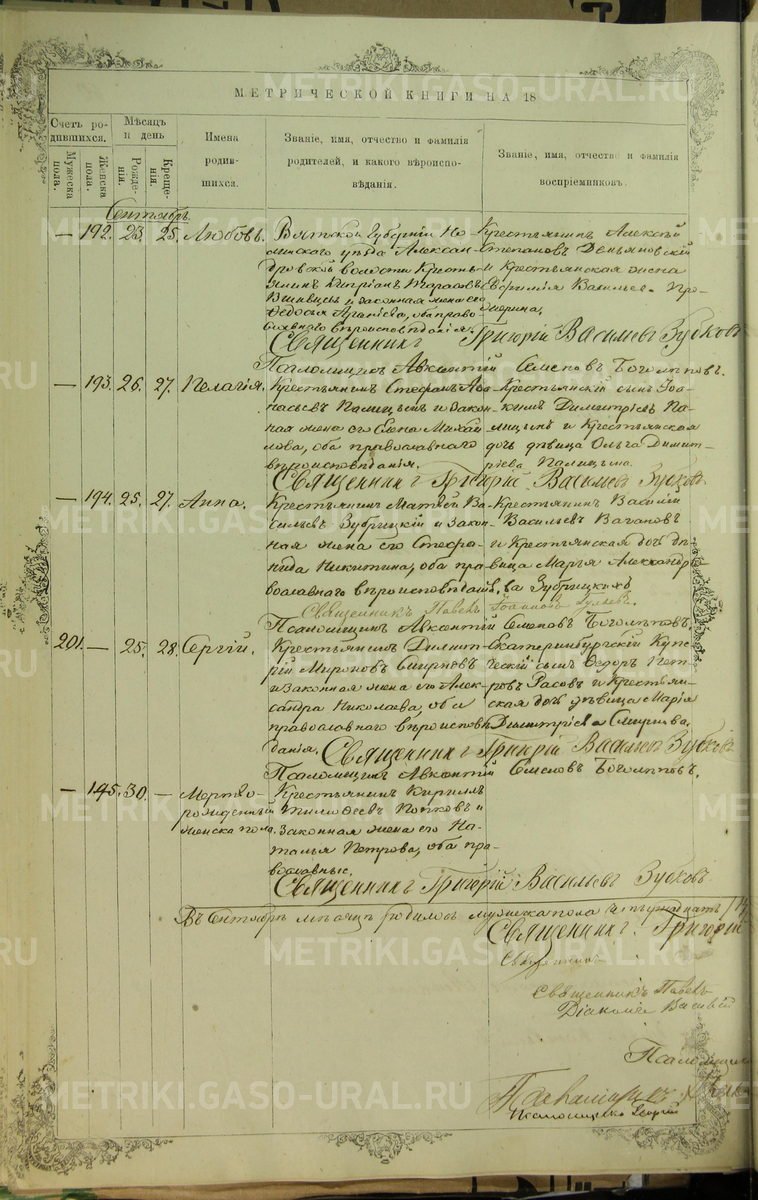 МЕТРИЧЕСКОЙ КНИГИ НА 18
Счетъ ро-
дившихся.
Мужеска пола.
Женска пола.
Мѣсяцъ
и день
Рожде-
нія.
Креще-
нія.
Имена
родив-
шихся.
Званіе, имя, отчество и фамилія
родителей, и какого вѣроиспо-
вѣданія.
Званіе, имя, отчество и фамилія
воспріемниковъ.
Сентябрь.
— 192. 23. 25. Любовь.
Вятской Губерніи
уѣзда Алексан-
дровской волости Кресть-
янинъ Кипріанъ Тарасовъ
и законная жена его
Ѳедосья, оба право-
славнаго вѣроисповѣданія.
Крестьянинъ Алексѣй
Степановъ Демьяновскій
и Крестьянская жена
Евфимія Васильева
Священникъ Григорій Васильевъ Зубковъ
Псаломщикъ Авксентій Семеновъ Боголѣповъ.
— 193. 26. 27. Пелагія.
Крестьянинъ Стефанъ Аѳа-
насьевъ Палицынъ и закон-
ная жена его Елена Михай-
лова, оба православнаго
вѣроисповѣданія.
Крестьянскій сынъ Іоа-
кимъ Димитріевъ Па-
лицынъ и Крестьянская
дочь дѣвица Ольга Димит-
ріева Палицына.
Священникъ Григорій Васильевъ Зубковъ.
— 194. 25. 27. Анна.
Крестьянинъ Матвѣй Ва-
сильевъ Зубрицкій и закон-
ная жена его Стефа-
нида Никитина, оба пра-
вославнаго вѣроисповѣданія.
Крестьянинъ Василій
Васильевъ Вагановъ
и Крестьянская дочь дѣ-
вица Марья Александро-
ва Зубрицкихъ
Священникъ Павелъ Іоанновъ
Псаломщикъ Авксентій Семеновъ Боголѣповъ.
201. — 25. 28. Сергій.
Крестьянинъ Димит-
рій Мироновъ Смирновъ
и законная жена его Алек-
сандра Николаева, оба
православнаго вѣроисповѣ-
данія.
Екатеринбургскій Купе-
ческій сынъ Ѳедоръ Пет-
ровъ Расовъ и Крестьян-
ская дочь дѣвица Марія
Димитріева Смирнова.
Священникъ Григорій Васильевъ Зубковъ
Псаломщикъ Авксентій Семеновъ Боголѣповъ.
— 195. 30. — Мертво-
рожденный
женска пола.
Крестьянинъ Кириллъ
Тимоѳеевъ Попковъ и
законная жена его На-
талья Петрова, оба пра-
вославные.
Священникъ Григорій Васильевъ Зубковъ.
Въ Сентябрѣ мѣсяцѣ родилось мужеска пола
Священникъ Григорій
Священникъ
Священникъ Павелъ
Діаконъ Василій
Псаломщикъ
Псаломщикъ
Псаломщикъ Георгій
METRIKI.GASO-URAL.RU